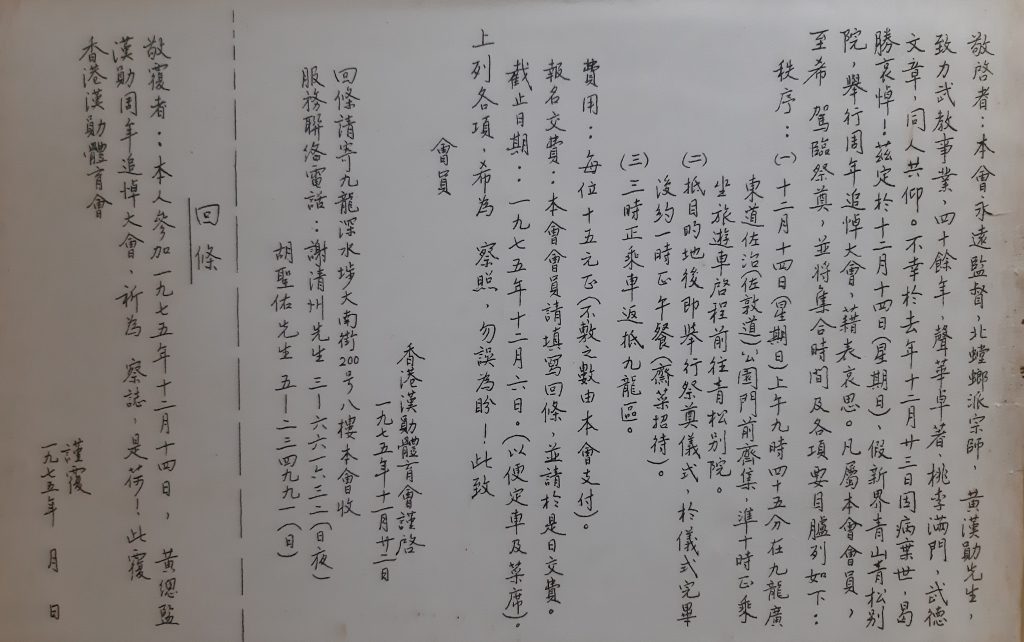 敬啓者：本會永遠監督，北螳螂派宗師，黃漢勛先生，
致力武教事業，四十餘年，聲華卓著，桃李滿門，武德
文章，同人共仰。不幸於去年十二月廿三日因病棄世，曷
勝哀悼！茲定於十二月十四日（星期日），假新界青山青松別
院，舉行周年追悼大會，藉表哀思。凡屬本會會員，
至希 駕臨祭奠，並將集合時間及各項要目臚列如下：
秩序：（一）十二月十四日（星期日）上午九時四十五分在九龍廣
東道佐治（佐敦道）公園門前齊集，準十時正乘
坐旅遊車啓程前往青松別院。
（二）抵目的地後即舉行祭奠儀式，於儀式完畢
後約一時正午餐（齋菜招待）。
（三）三時正乘車返抵九龍區。
費用：每位十五元正（不敷之數由本會支付）。
報名交費：本會會員請填寫回條，並請於是日交費。
截止日期：一九七五年十二月六日。（以便定車及菜席）。
上列各項，希為 察照，勿誤為盼！此致
會員
香港漢勛體育會謹啓
一九七五年十一月廿二日
回條請寄九龍深水埗大南街200号八樓本會收
服務聯絡電話：謝清州先生 三－六六六三二（日夜）
胡聖佑先生 五－二三四九九一（日）
回條
敬覆者：本人參加一九七五年十二月十四日，黃總監
漢勛周年追悼大會，祈為 察誌，是荷！此覆
香港漢勛體育會
謹覆
一九七五年 月 日